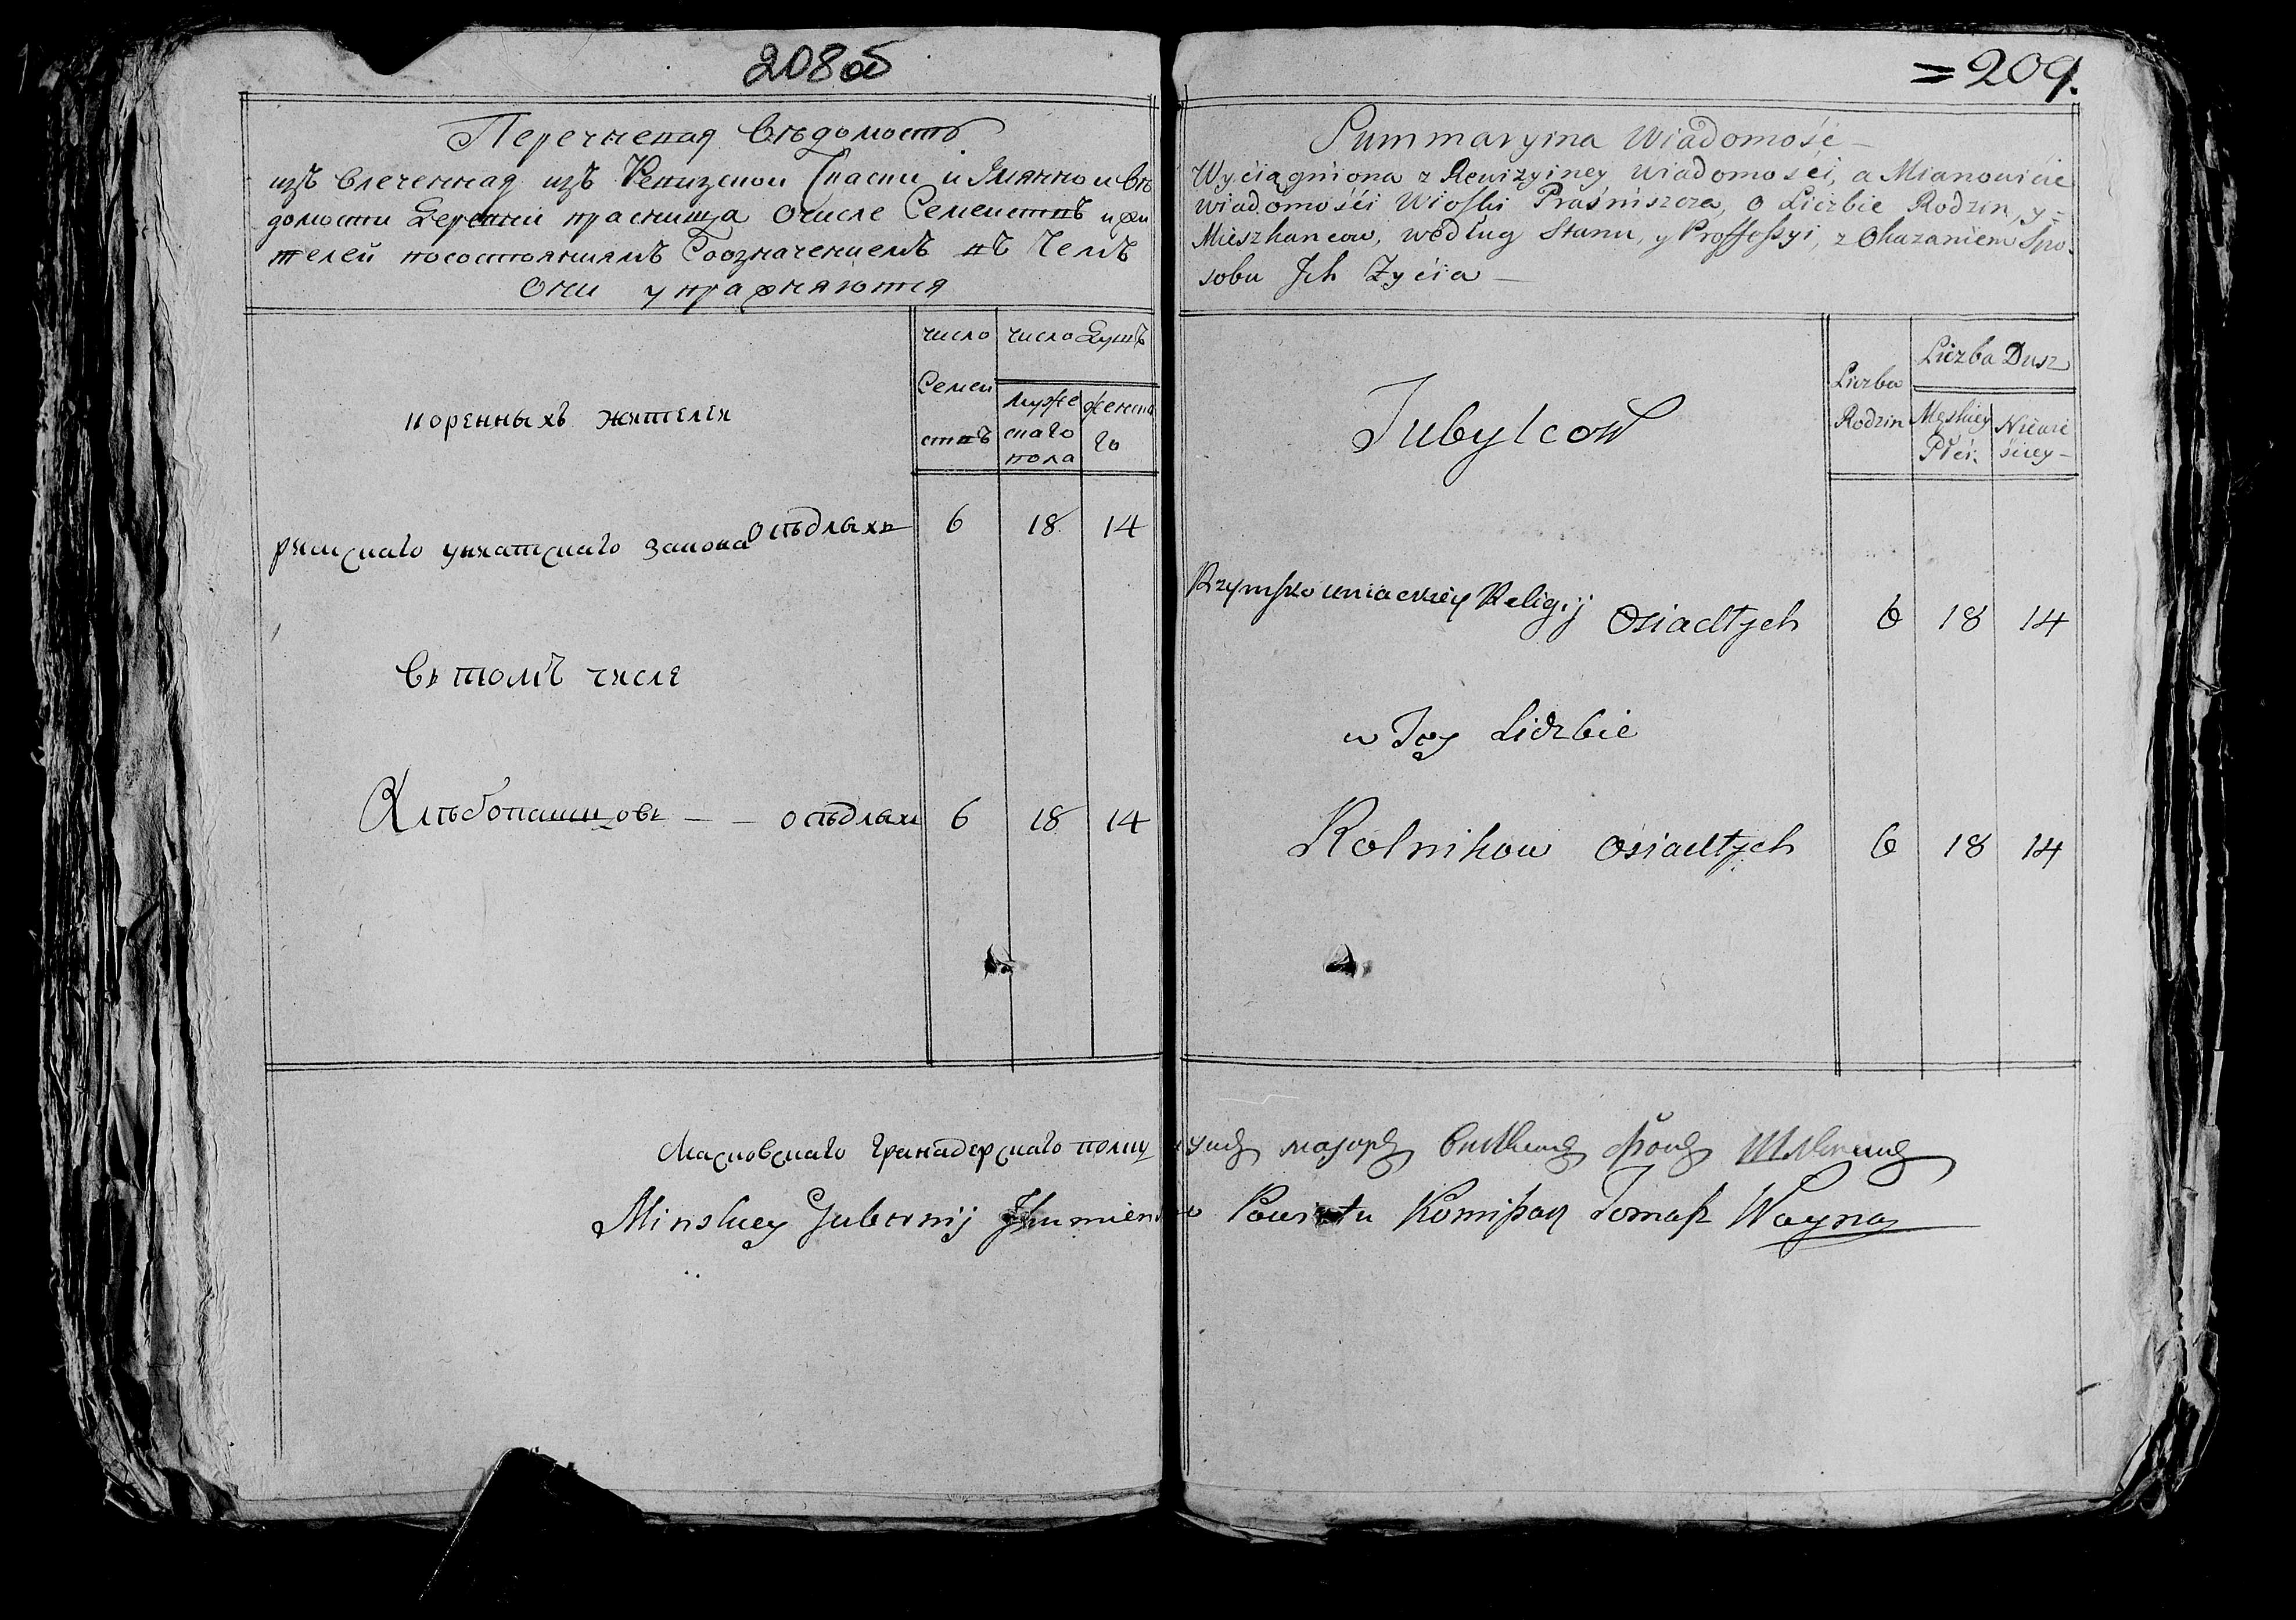 208об
Перечневая Вѣдомость
изъ влеченная изъ Ревизской Скаски и Имянно и Вѣ
домости Деревни праснища О числе Семействъ и жи
телей по состояниямъ Со означениемъ въ Чемъ
Они упражняются
число Семей ствъ
число Душъ
Муже скаго пола
женска го
коренныхъ жителеи
римскаго униатскаго закона осѣдлыхъ 6 18 14
въ томъ числе
Хлѣбопашцовъ — — осѣдлых 6 18 14
= 209.
Summaryina Wiadomość —
Wyciągniona z Rewizyiney Wiadomości, a Mianowicie
Wiadomośći Wioski Praśniszcza, o Liczbie Rodzin, y =
Mieszkancow, według Stanu, y Proffessyi, z Okazaniem Spo-
sobu Jch Zyćia —
Liczba Rodzin
Liczba Dusz
Męskiey Płći.
Niewie śćiey —
Tubylcow
Rzymsko uniackiey Religij Osiadłych 6 18 14
w Tey Liczbie
Rolnikow osiadłych 6 18 14
Масковскаго гранадерскаго полку секундъ маіоръ фонъ
Minskiey Gubernij Jhumiensko Powiatu Komißarz Tomaß Woyna